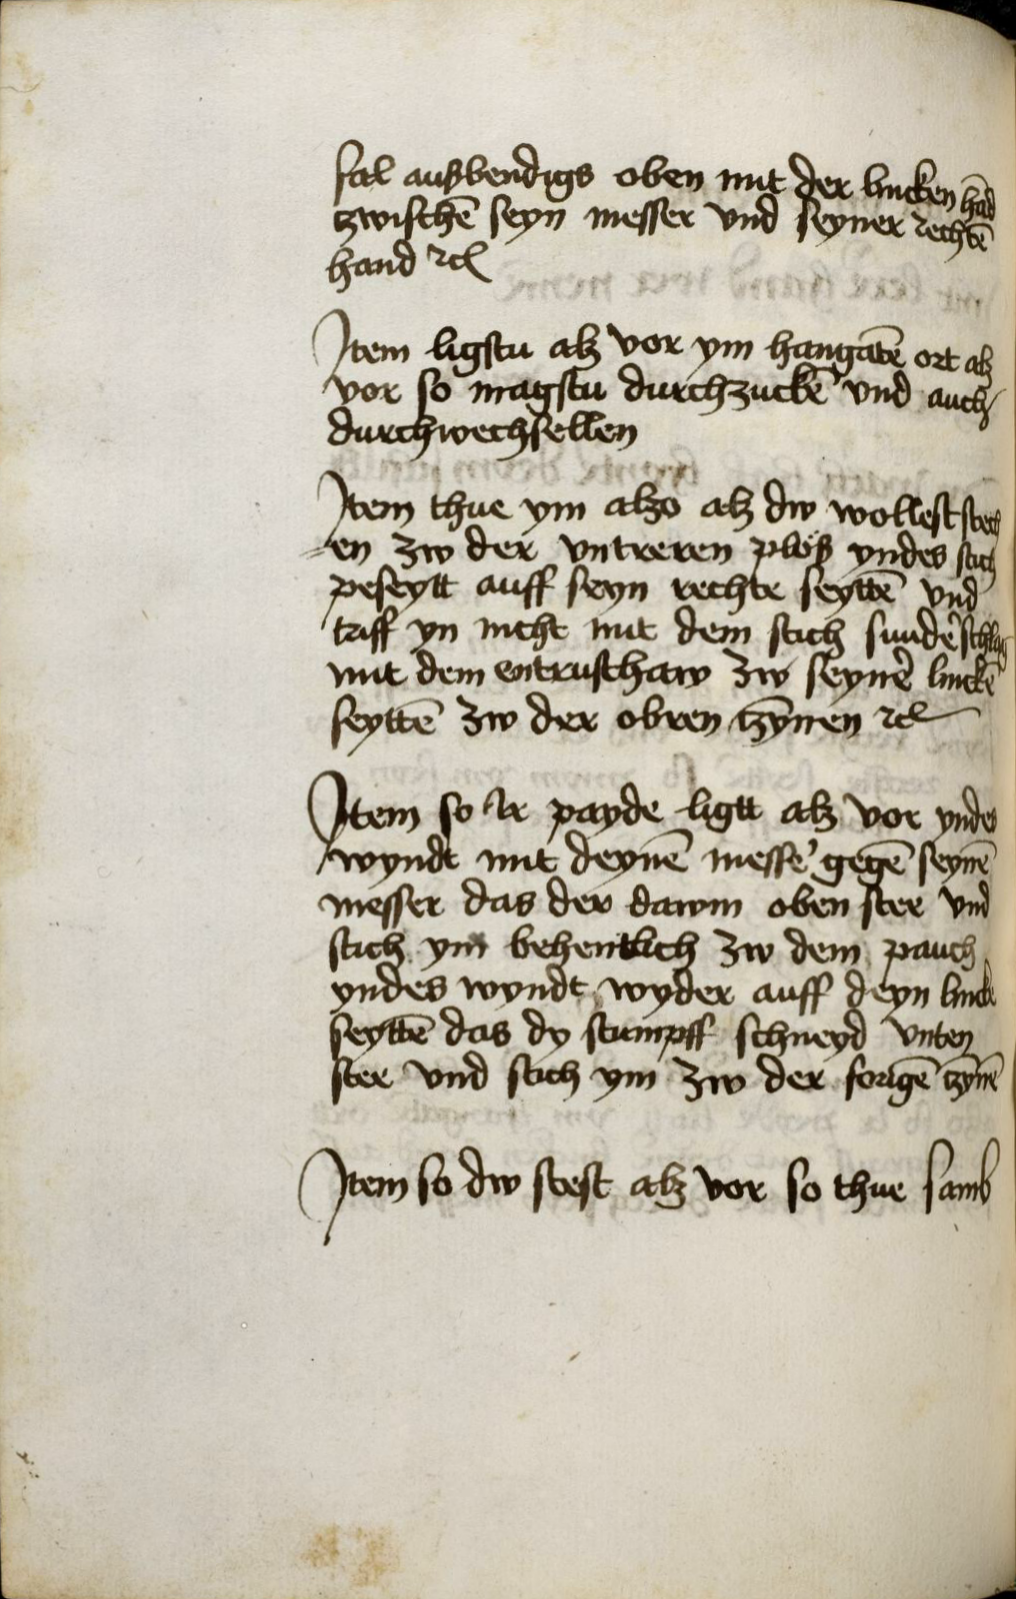 fal auswendigs oben mit der lincken hād
tzwischē seyn messer vnd seyner rechtē
hand ⁊c
Jtem ligstu alz vor ym hangātē ort alz
vor so magstu durchzuckē vnd auch
durchwechsellen
Jtem thue ym alzo alz dw wollest stech
=en zw der vntreren plöß yndes stich
peseytt auff seyn rechte seyttē vnd
triff yn nicht mit dem stich sunde' schlag
mit dem entrusthaw zw seyne' linckē
seyttē zw der obren tzȳnen ⁊c
Jtem so ir payde ligtt alz vor yndes
wyndt mit deynē messe' gegē seynē
messer das der dawm oben stee vnd
stich ym behentlich zw dem pauch
yndes wyndt wyder auff deyn lincke
seyttē das dy stumpff schneyd vnten
stee vnd stich ym zw der forigē tzȳnē
Jtem so dw stest alz vor so thue samb